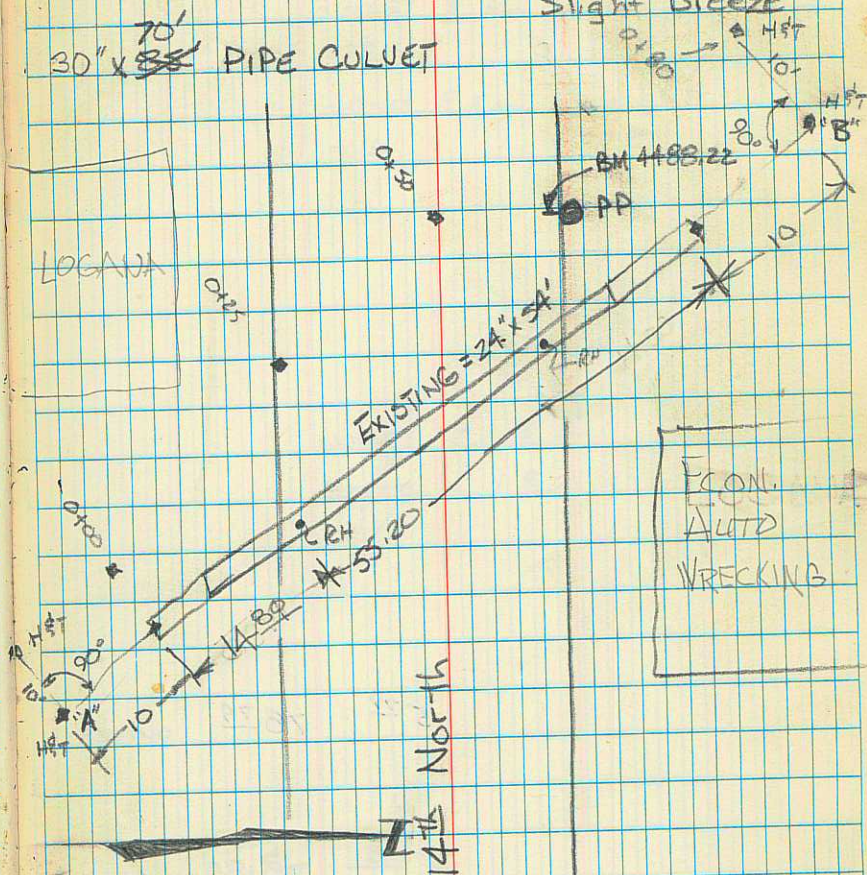 Slight Breeze
70'
30" x 85' PIPE CULVET
0+80
H&T
10-
H&T
"B"
90°
BM 4488.22
PP
0+50
10
LOGANA
0+25
EXISTING = 24" x 54'
RH
ECON.
AUTO
WRECKING
0+00
RH
55.20
14.80
H&T
10-
90°
"A"
H&T
10
14th North